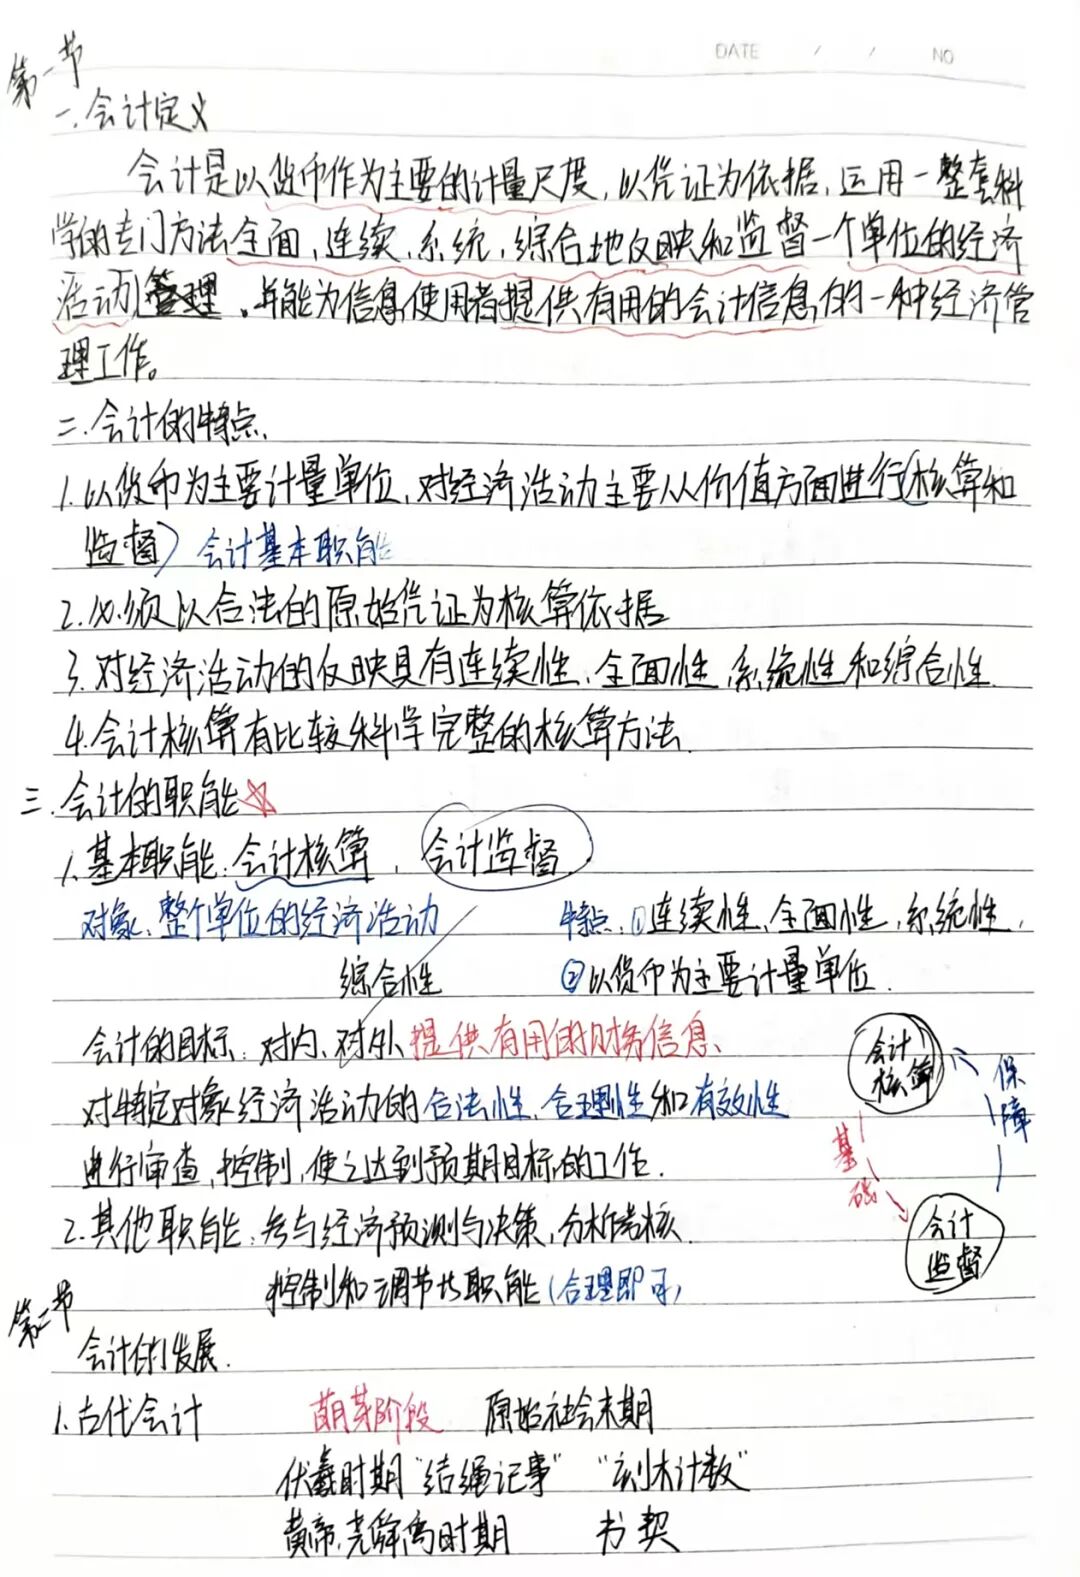 DATE / / NO
第一节
一、会计定义
会计是以货币作为主要的计量尺度，以凭证为依据，运用一整套科
学的专门方法全面，连续，系统，综合地反映和监督一个单位的经济
活动管理，并能为信息使用者提供有用的会计信息，的一种经济管
理工作。
二、会计的特点、
1、以货币为主要计量单位，对经济活动主要从价值方面进行（核算和
监督）会计基本职能
2、必须以合法的原始凭证为核算依据
3、对经济活动的反映具有连续性、全面性、系统性和综合性
4、会计核算有比较科学完整的核算方法
三、会计的职能☆
1、基本职能：会计核算，会计监督
对象、整个单位的经济活动 特点：①连续性、全面性、系统性，
综合性 ②以货币为主要计量单位.
会计的目标：对内、对外提供有用的财务信息、
会计核算
保障
对特定对象经济活动的合法性、合理性和有效性
进行审查，控制，使之达到预期目标的工作.
基础
2、其他职能：参与经济预测与决策，分析考核
会计监督
控制和调节等职能（合理即可）
第二节
会计的发展.
1、古代会计 萌芽阶段 原始社会末期
伏羲时期“结绳记事” “刻木计数”
黄帝、尧舜禹时期 书契